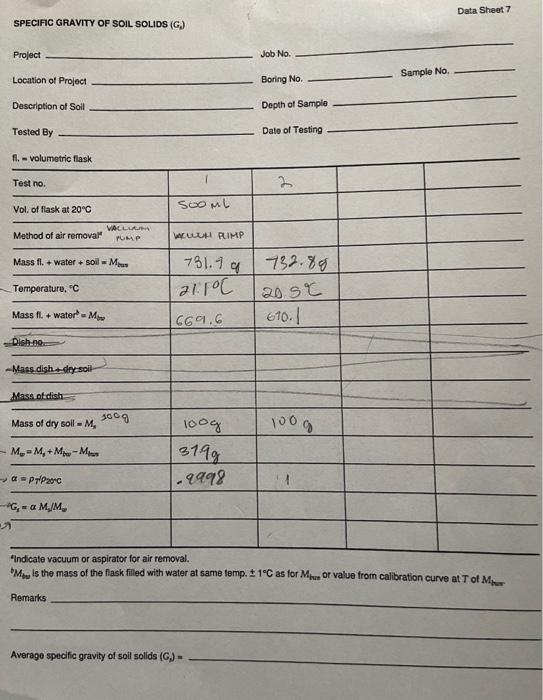 Data Sheet 7
SPECIFIC GRAVITY OF SOIL SOLIDS (Gₛ)
Project Job No.
Location of Project Boring No. Sample No.
Description of Soil Depth of Sample
Tested By Date of Testing
fl. = volumetric flask
Test no. 1 2
Vol. of flask at 20°C 500 ML
Method of air removalᵃ VACUUM PUMP VACUUM PUMP
Mass fl. + water + soil = M_bws 731.9 g 732.8g
Temperature, °C 21.1°C 20.5°C
Mass fl. + waterᵇ = M_bw 669.6 670.1
Dish no.
Mass dish + dry soil
Mass of dish
Mass of dry soil = Mₛ 100g 100g
M_w = Mₛ + M_bw - M_bws 379g
α = ρ_T/ρ_20°C .9998 1
Gₛ = α Mₛ/M_w
ᵃIndicate vacuum or aspirator for air removal.
ᵇM_bw is the mass of the flask filled with water at same temp. ± 1°C as for M_bws or value from calibration curve at T of M_bws.
Remarks
Average specific gravity of soil solids (Gₛ) =